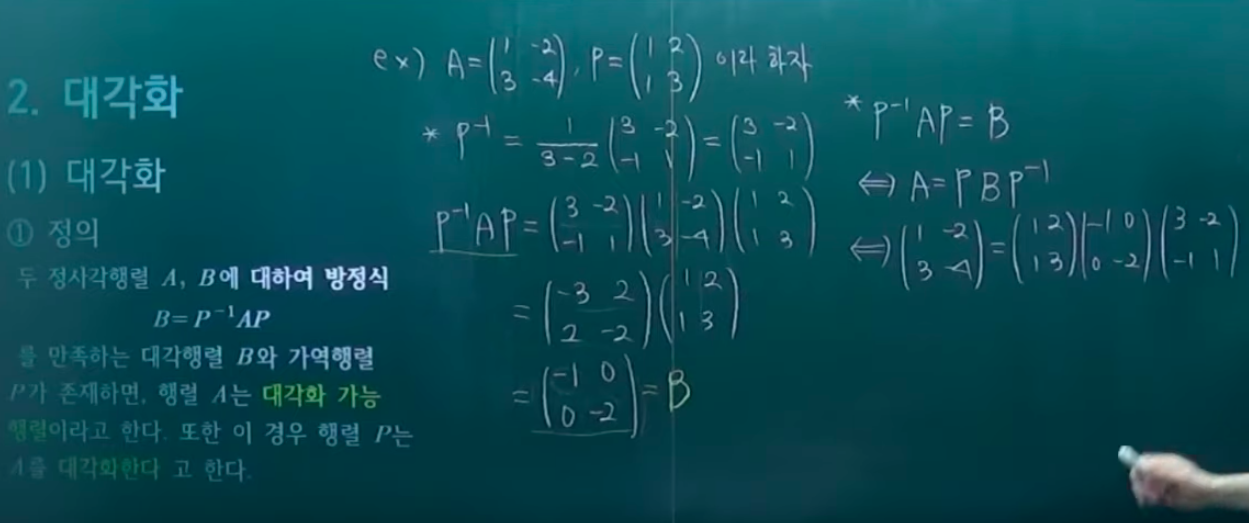 2. 대각화
(1) 대각화
① 정의
두 정사각행렬 A, B에 대하여 방정식
B=P⁻¹AP
를 만족하는 대각행렬 B와 가역행렬
P가 존재하면, 행렬 A는 대각화 가능
행렬이라고 한다. 또한 이 경우 행렬 P는
A를 대각화한다 고 한다.
ex) A=(1 -2; 3 -4), P=(1 2; 1 3) 이라 하자
* P⁻¹ = 1/(3-2) (3 -2; -1 1) = (3 -2; -1 1)
P⁻¹AP = (3 -2; -1 1)(1 -2; 3 -4)(1 2; 1 3)
= (-3 2; 2 -2)(1 2; 1 3)
= (-1 0; 0 -2) = B
* P⁻¹AP = B
⇔ A = PBP⁻¹
⇔ (1 -2; 3 -4) = (1 2; 1 3)(-1 0; 0 -2)(3 -2; -1 1)